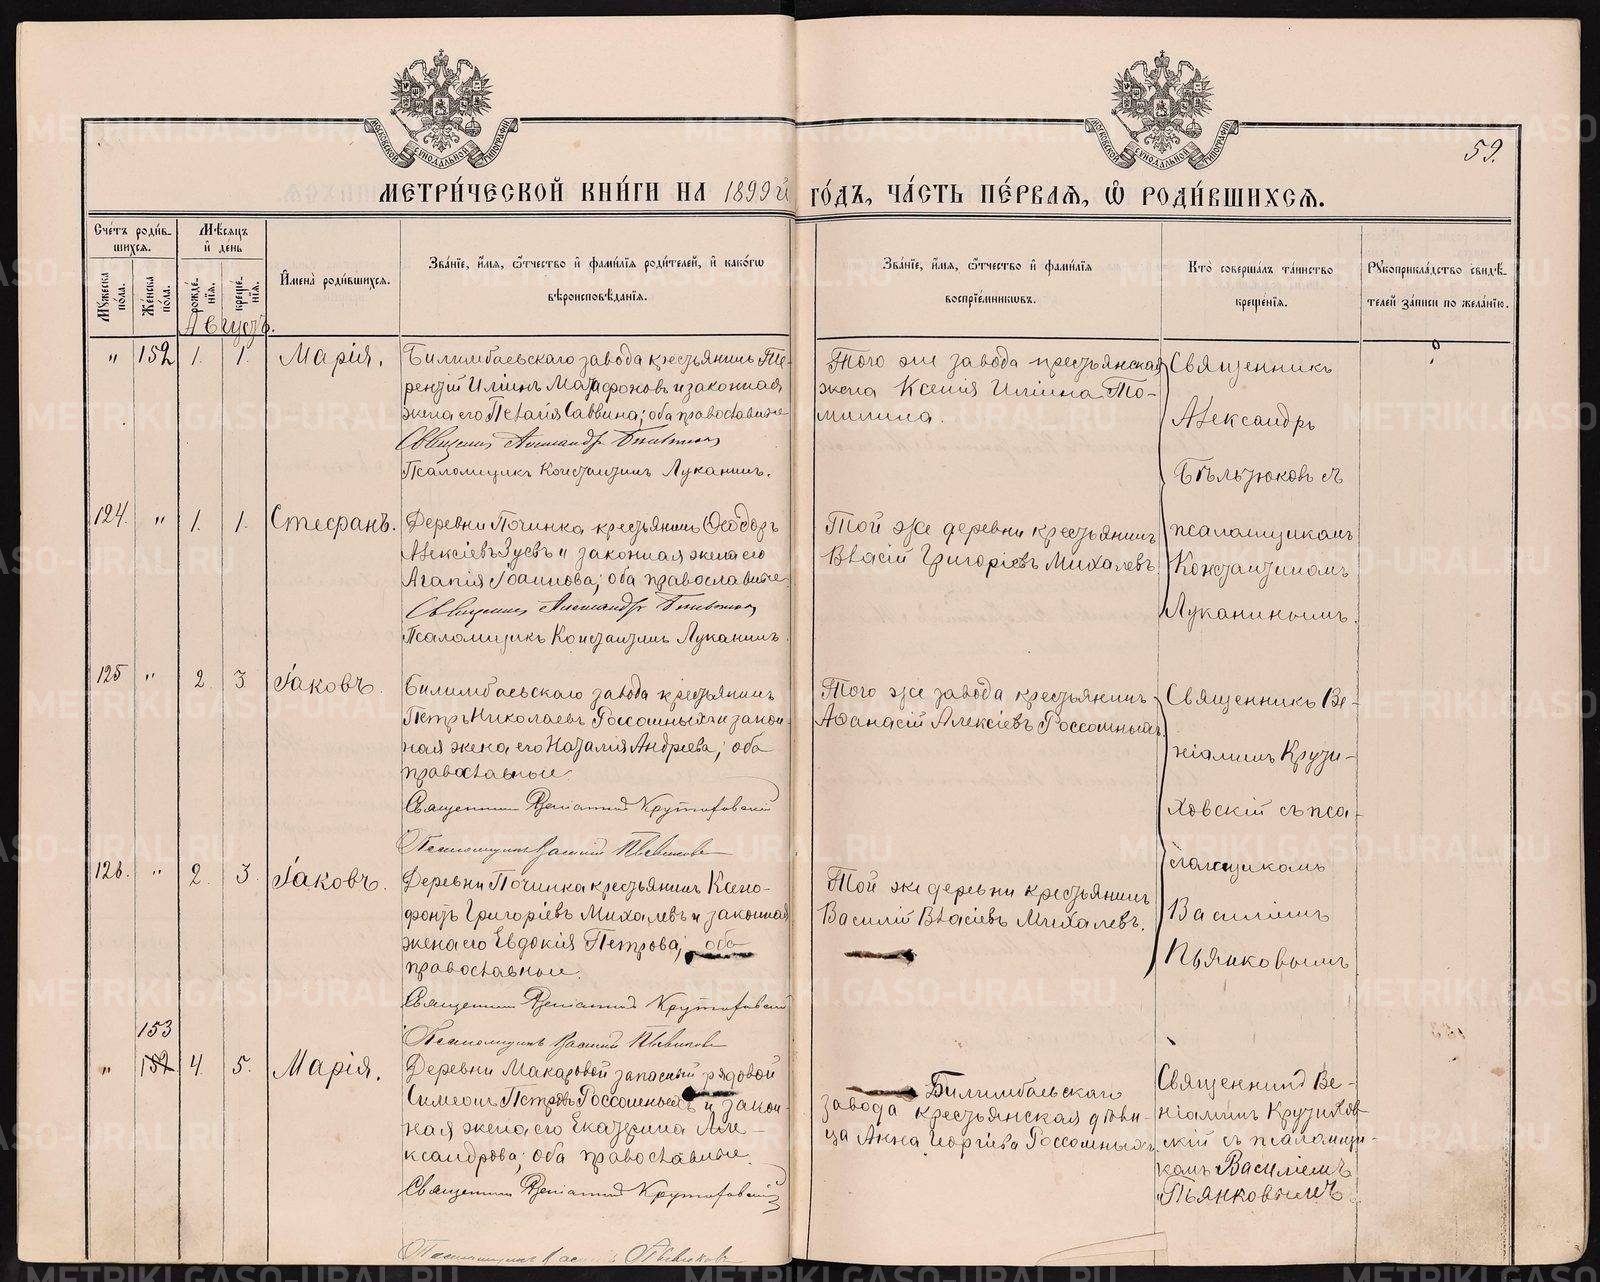 МОСКОВСКОЙ СѴНОДАЛЬНОЙ ТИПОГРАФІИ
МОСКОВСКОЙ СѴНОДАЛЬНОЙ ТИПОГРАФІИ
59.
МЕТРИ́ЧЕСКОЙ КНИ́ГИ НА 1899й ГО́ДЪ, ЧА́СТЬ ПЕ́РВАѦ, Ѡ҆ РОДИ́ВШИХСѦ.
Сче́тъ роди́в-
шихсѧ.
Мѣ́сѧцъ
и҆ де́нь
Мꙋ́жеска по́ла.
Же́нска по́ла.
рожде́-
нїѧ.
креще́-
нїѧ.
И҆мена̀ роди́вшихсѧ.
Зва́нїе, и҆́мѧ, ѻ҆́тчество и҆ фами́лїѧ роди́телей, и҆ како́гѡ
вѣроисповѣ́данїѧ.
Зва́нїе, и҆́мѧ, ѻ҆́тчество и҆ фами́лїѧ
воспрїе́мникѡвъ.
Кто̀ соверша́лъ та́инство
креще́нїѧ.
Рꙋкоприкла́дство свидѣ́-
телей за́писи по жела́нїю.
Августъ.
" 152 1. 1. Марія.
Билимбаевскаго завода крестьянинъ Те-
рентій Иліинъ Матафоновъ и законная
жена его Пелагія Саввина; оба православные
Священникъ Александръ
Псаломщикъ Константинъ Луканинъ.
Того же завода крестьянская
жена Ксенія Иліина То-
милина.
Священникъ
Александръ
Бѣльтюковъ съ
псаломщикомъ
Константиномъ
Луканинымъ.
124. " 1. 1. Стефанъ.
Деревни Починка крестьянинъ Ѳеодоръ
Алексіевъ Зуевъ и законная жена его
Агапія Іоаннова; оба православные
Священникъ Александръ
Псаломщикъ Константинъ Луканинъ.
Той же деревни крестьянинъ
Власій Григоріевъ Михалевъ.
125 " 2. 3. Іаковъ.
Билимбаевскаго завода крестьянинъ
Петръ Николаевъ Россошныхъ и закон-
ная жена его Наталія Андреева; оба
православные
Священникъ Веніаминъ Крутиховскій
Псаломщикъ Василій Пьянковъ
Того же завода крестьянинъ
Аѳанасій Алексіевъ Россошныхъ.
Священникъ Ве-
ніаминъ Крути-
ховскій съ пса-
ломщикомъ
Василіемъ
Пьянковымъ
126. " 2. 3. Іаковъ.
Деревни Починка крестьянинъ Ксено-
фонтъ Григоріевъ Михалевъ и законная
жена его Евдокія Петрова; оба
православные.
Священникъ Веніаминъ Крутиховскій
Псаломщикъ Василій Пьянковъ
Той же деревни крестьянинъ
Василій Власіевъ Михалевъ.
153
" 152 4. 5. Марія.
Деревни Макаровой запасный рядовой
Симеонъ Петровъ Россошныхъ и закон-
ная жена его Екатерина Але-
ксандрова; оба православные.
Священникъ Веніаминъ Крутиховскій
Псаломщикъ Василій Пьянковъ
Билимбаевскаго
завода крестьянская дѣви-
ца Анна Георгіева Россошныхъ.
Священникъ Ве-
ніаминъ Крутихов-
скій съ псаломщи-
комъ Василіемъ
Пьянковымъ
METRIKI.GASO-URAL.RU